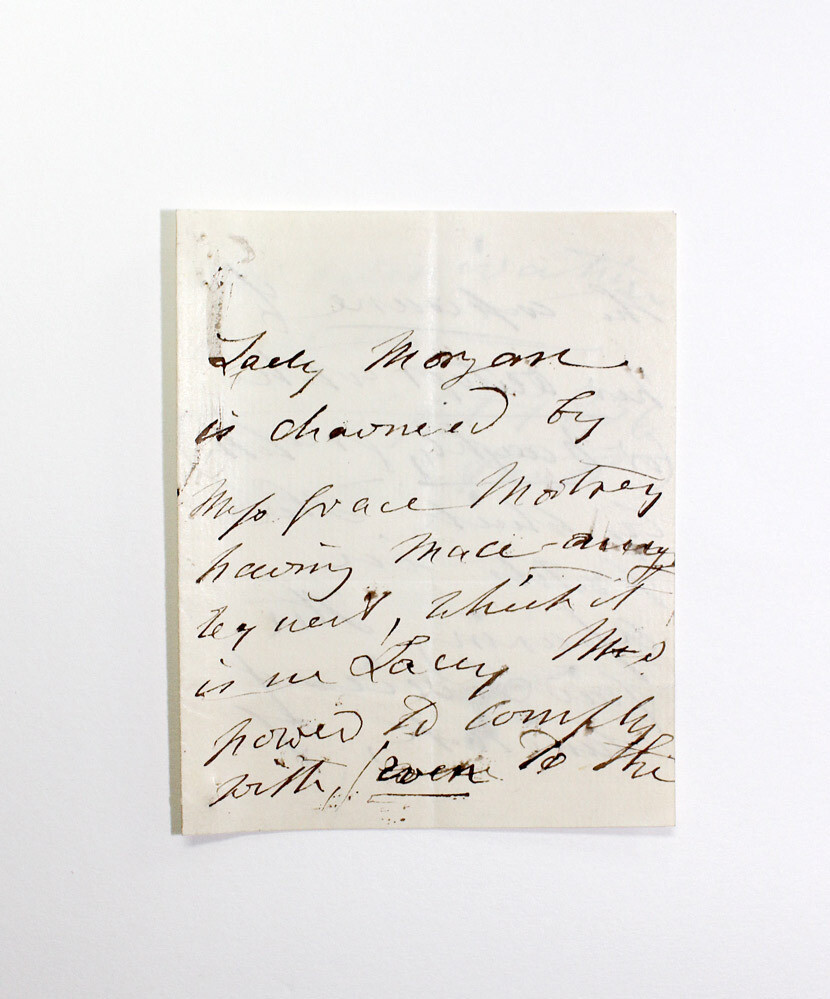 Lady Morgan
is charmed by
Miss Grace
having made any
request, which it
is in Lady M's
power to comply
with, (even to the